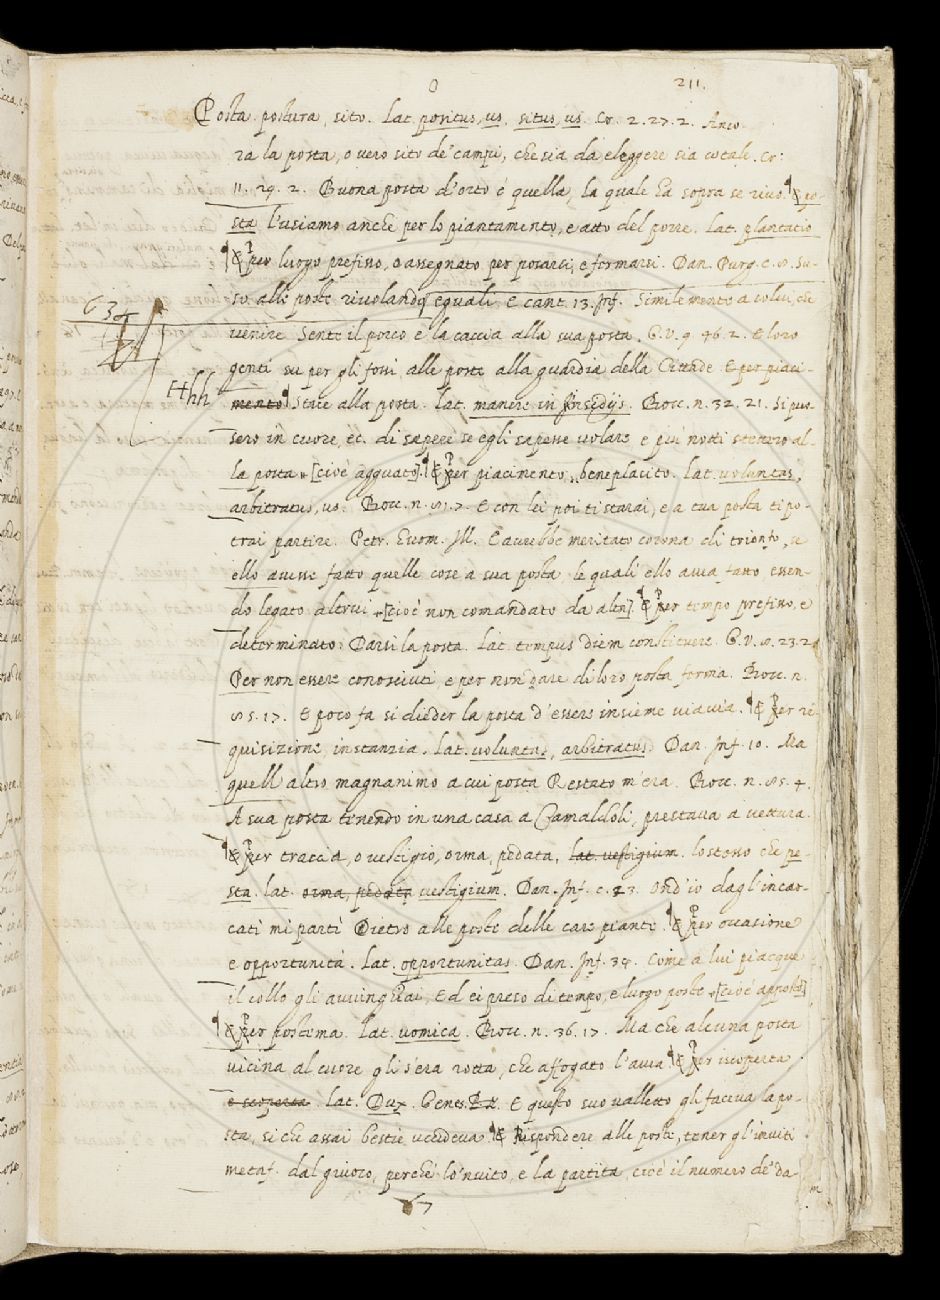 O 211.
Posta. postura, sito. Lat. positus, us. situs, us. Cr. 2. 27. 2. Anco-
ra la posta, o vero sito de' campi, che sia da eleggere sia cotale. Cr:
11. 29. 2. Buona posta d'orto è quella, la quale ha sopra se rivo. E po-
sta l'usiamo anche per lo piantamento, e atto del porre. Lat. plantatio
E per luogo prefisso, o assegnato per posarsi, e fermarsi. Dan. Purg. c. 8. Su-
so alle poste rivolando eguali. E cant. 13. Inf. Similemente a colui, che
venire Sente il porco e la caccia alla sua posta. G. V. 9. 46. 2. E loro
genti su per gli fossi alle poste alla guardia della Cittade. E per piaci-
634
Hhh
mento Stare alla posta. Lat. manere in Insidijs. Bocc. n. 32. 21. Si puo-
sero in cuore, ec. di sapere se egli sapesse volare e più notti stettero al-
la posta [cioè agguato]. E per piacimento, beneplacito. Lat. voluntas,
arbitratus, us. Bocc. n. 81. 7. E con lei poi ti starai, e a tua posta ti po-
trai partire. Petr. Vuom. Ill. E avrebbe meritato corona di trionfo, se
ello avesse fatto quelle cose a sua posta le quali ello avea fatto essen-
do legato altrui [cioè non comandato da altri]. E per tempo prefisso, e
determinato: Darsi la posta. Lat. tempus diem constituere. G. V. 8. 23. 2.
Per non essere conosciuti, e per non dare di loro posta ferma. Bocc. n.
85. 17. E poco fa si dieder la posta d'essere insieme via via. E per re-
quisizione, instanzia. Lat. voluntas, arbitratus. Dan. Inf. 10. Ma
quell'altro magnanimo a cui posta Restato m'era. Bocc. n. 85. 4.
A sua posta tenendo in una casa a Camaldoli, prestava a vettura.
E per traccia, o vestigio, orma, pedata, lat. vestigium. lo stesso che pe-
sta. lat. orma, pedata vestigium. Dan. Inf. c. 23. Ond'io dagl'incar-
cati mi partì Dietro alle poste delle care piante. E per occasione
e opportunità. Lat. opportunitas. Dan. Inf. 34. Come a lui piacque
il collo gli avvinghiai, Ed ei prese di tempo, e luogo poste [cioè apposto]
E per postema. Lat. vomica. Bocc. n. 36. 17. Ma che alcuna posta
vicina al cuore gli s'era rotta, che affogato l'avea. E per iscoperta
e scoperta. lat. Dux. E questo suo valletto gli faceva la po-
sta, si che assai bestie uccideva. E Rispondere alle poste, tener gl'inviti
metaf. dal giuoco, perchè lo 'nvito, e la partita, cioè il numero de' da-
67